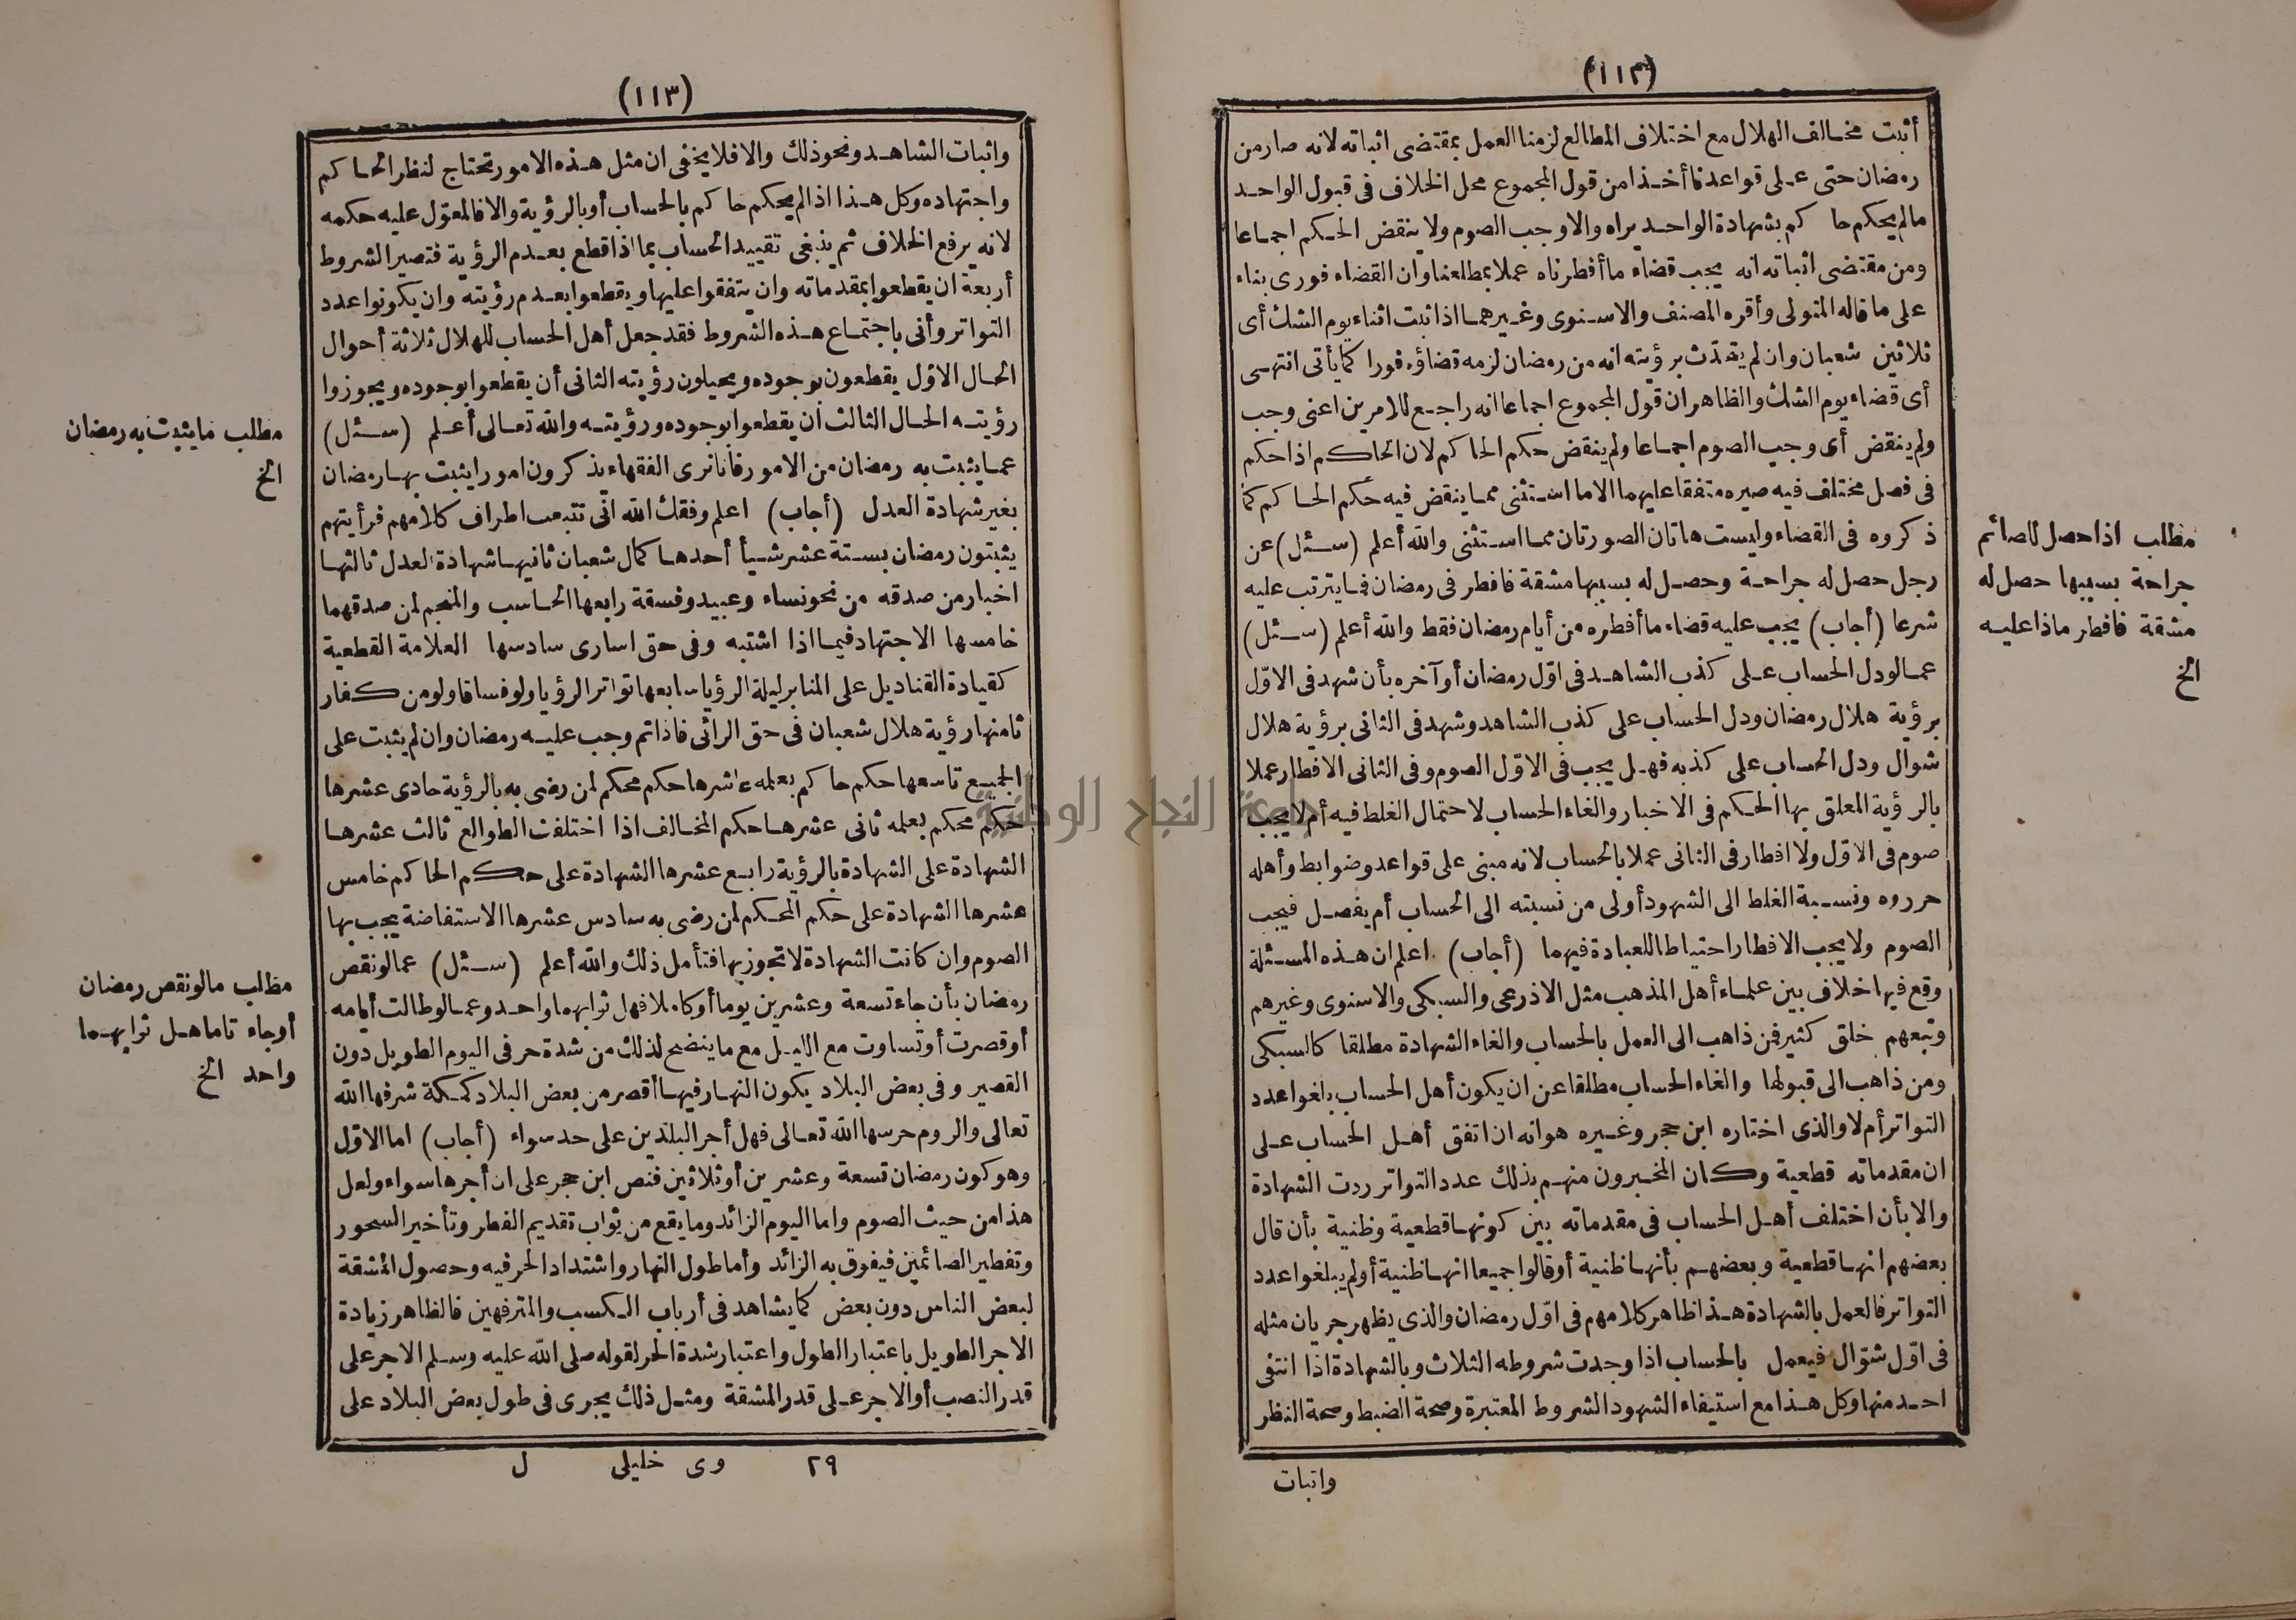 (١١٢)
أثبت مخالف الهلال مع اختلاف المطالع لزمنا العمل بمقتضى اثباته لانه صار من
رمضان حتى على قواعدنا أخذا من قول المجموع محل الخلاف فى قبول الواحد
مالم يحكم حاكم بشهادة الواحد يراه والاوجب الصوم ولا ينقض الحكم اجماعا
ومن مقتضى اثباته انه يجب قضاء ما أفطرناه عملا بمطلعنا وان القضاء فورى بناء
على ما قاله المتولى وأقره المصنف والاسنوى وغيرهما اذا ثبت اثناء يوم الشك أى
ثلاثين شعبان وان لم يتحدّث برؤيته انه من رمضان لزمه قضاؤه فورا كما يأتى انتهى
أى قضاء يوم الشك والظاهر ان قول المجموع اجماعا انه راجع للامرين اعنى وجب
ولم ينقض أى وجب الصوم اجماعا ولم ينقض حكم الحاكم لان الحاكم اذا حكم
فى فصل مختلف فيه صيره متفقا عليهما الا ما استثنى مما ينقض فيه حكم الحاكم كما
ذكروه فى القضاء وليست هاتان الصورتان مما استثنى والله أعلم (سئل) عن
رجل حصل له جراحة وحصل له بسببها مشقة فافطر فى رمضان فما يترتب عليه
شرعا (أجاب) يجب عليه قضاء ما أفطره من أيام رمضان فقط والله أعلم (سئل)
عما لو دل الحساب على كذب الشاهد فى اوّل رمضان أو آخره بأن شهد فى الاوّل
برؤية هلال رمضان ودل الحساب على كذب الشاهد وشهد فى الثانى برؤية هلال
شوال ودل الحساب على كذبه فهل يجب فى الاوّل الصوم وفى الثانى الافطار عملا
بالرؤية المعلق بها الحكم فى الاخبار والغاء الحساب لاحتمال الغلط فيه أم لا يجب
صوم فى الاوّل ولا افطار فى الثانى عملا بالحساب لانه مبنى على قواعد وضوابط وأهله
حرروه ونسبة الغلط الى الشهود أولى من نسبته الى الحساب أم يفصل فيجب
الصوم ولا يجب الافطار احتياطا للعبادة فيهما (أجاب) اعلم ان هذه المسئلة
وقع فيها خلاف بين علماء أهل المذهب مثل الاذرعى والسبكى والاسنوى وغيرهم
وتبعهم خلق كثير فمن ذاهب الى العمل بالحساب والغاء الشهادة مطلقا كالسبكى
ومن ذاهب الى قبولها والغاء الحساب مطلقا عن ان يكون أهل الحساب بلغوا عدد
التواتر أم لا والذى اختاره ابن حجر وغيره هو انه ان اتفق أهل الحساب على
ان مقدماته قطعية وكان المخبرون منهم بذلك عدد التواتر ردت الشهادة
والا بأن اختلف أهل الحساب فى مقدماته بين كونها قطعية وظنية بأن قال
بعضهم انها قطعية وبعضهم بأنها ظنية أو قالوا جميعا انها ظنية أو لم يبلغوا عدد
التواتر فالعمل بالشهادة هذا ظاهر كلامهم فى اوّل رمضان والذى يظهر جريان مثله
فى اوّل شوّال فيعمل بالحساب اذا وجدت شروطه الثلاث وبالشهادة اذا انتفى
احد منها وكل هذا مع استيفاء الشهود الشروط المعتبرة وصحة الضبط وصحة النظر
واثبات
مطلب اذا حصل للصائم
جراحة بسببها حصل له
مشقة فافطر ماذا عليه
الخ
(١١٣)
واثبات الشاهد ونحو ذلك والا فلا يخفى ان مثل هذه الامور تحتاج لنظر الحاكم
واجتهاده وكل هذا اذا لم يحكم حاكم بالحساب أو بالرؤية والا فالمعوّل عليه حكمه
لانه يرفع الخلاف ثم ينبغى تقييد الحساب بما اذا قطع بعدم الرؤية فتصير الشروط
أربعة ان يقطعوا بمقدماته وان يتفقوا عليها ويقطعوا بعدم رؤيته وان يكونوا عدد
التواتر وأنى باجتماع هذه الشروط فقد جعل أهل الحساب للهلال ثلاثة أحوال
الحال الاوّل يقطعون بوجوده ويحيلون رؤيته الثانى أن يقطعوا بوجوده ويجوزوا
رؤيته الحال الثالث ان يقطعوا بوجوده ورؤيته والله تعالى أعلم (سئل)
عما يثبت به رمضان من الامور فانا نرى الفقهاء يذكرون امورا يثبت بها رمضان
بغير شهادة العدل (أجاب) اعلم وفقك الله انى تتبعت اطراف كلامهم فرأيتهم
يثبتون رمضان بستة عشر شيأ أحدها كمال شعبان ثانيها شهادة العدل ثالثها
اخبار من صدقه من نحو نساء وعبيد وفسقة رابعها الحاسب والمنجم لمن صدقهما
خامسها الاجتهاد فيما اذا اشتبه وفى حق اسارى سادسها العلامة القطعية
كقيادة القناديل على المنابر ليلة الرؤيا سابعها تواتر الرؤيا ولو فساقا ولو من كفار
ثامنها رؤية هلال شعبان فى حق الرائى فاذا تم وجب عليه رمضان وان لم يثبت على
الجميع تاسعها حكم حاكم بعلمه عاشرها حكم محكم لمن رضى به بالرؤية حادى عشرها
حكم محكم بعلمه ثانى عشرها حكم المخالف اذا اختلفت الطوالع ثالث عشرها
الشهادة على الشهادة بالرؤية رابع عشرها الشهادة على حكم الحاكم خامس
عشرها الشهادة على حكم المحكم لمن رضى به سادس عشرها الاستفاضة يجب بها
الصوم وان كانت الشهادة لا تجوز بها فتأمل ذلك والله أعلم (سئل) عما لو نقص
رمضان بأن جاء تسعة وعشرين يوما أو كاملا فهل ثوابهما واحد وعما لو طالت أيامه
أو قصرت أو تساوت مع الليل مع ما ينضح لذلك من شدة حر فى اليوم الطويل دون
القصير وفى بعض البلاد يكون النهار فيها أقصر من بعض البلاد كمكة شرفها الله
تعالى والروم حرسها الله تعالى فهل أجر البلدين على حد سواء (أجاب) اما الاوّل
وهو كون رمضان تسعة وعشرين أو ثلاثين فنص ابن حجر على ان أجرها سواء ولعل
هذا من حيث الصوم واما اليوم الزائد وما يقع من ثواب تقديم الفطر وتأخير السحور
وتفطير الصائمين فيفوق به الزائد وأما طول النهار واشتداد الحر فيه وحصول المشقة
لبعض الناس دون بعض كما يشاهد فى أرباب الكسب والمترفهين فالظاهر زيادة
الاجر الطويل باعتبار الطول واعتبار شدة الحر لقوله صلى الله عليه وسلم الاجر على
قدر النصب أو الاجر على قدر المشقة ومثل ذلك يجرى فى طول بعض البلاد على
٢٩ وى خليلى ل
مطلب ما يثبت به رمضان
الخ
مطلب ما لو نقص رمضان
أو جاء تاما هل ثوابهما
واحد الخ
جامعة النجاح الوطنية